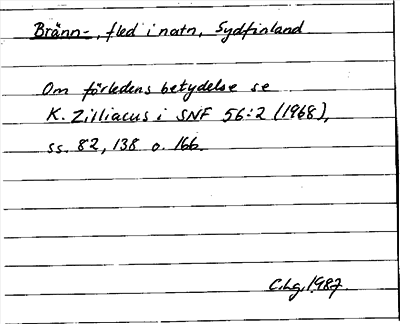 Bränn-, fled i natn, Sydfinland
Om förledens betydelse se
K. Zilliacus i SNF 56:2 (1968),
ss. 82, 138 o. 166.
C.Lg. 1987.